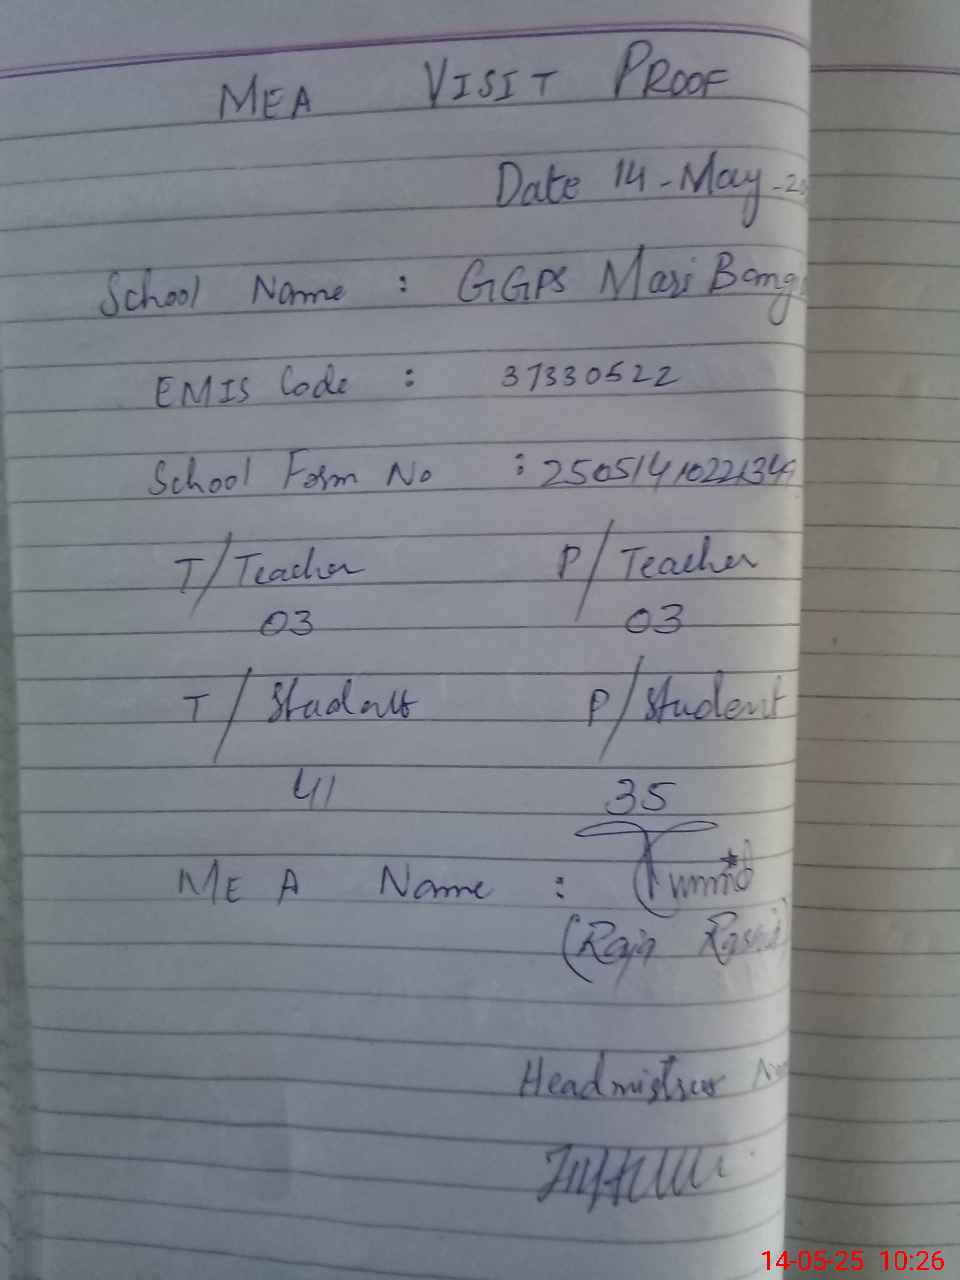 MEA VISIT PROOF
Date 14-May-20
School Name : GGPS Mari Bang
EMIS Code : 37330522
School Form No : 2505141022134
T/Teacher P/Teacher
03 03
T/Students P/Student
41 35
MEA Name :
(Raja Rashid)
Headmistress
14-05-25 10:26